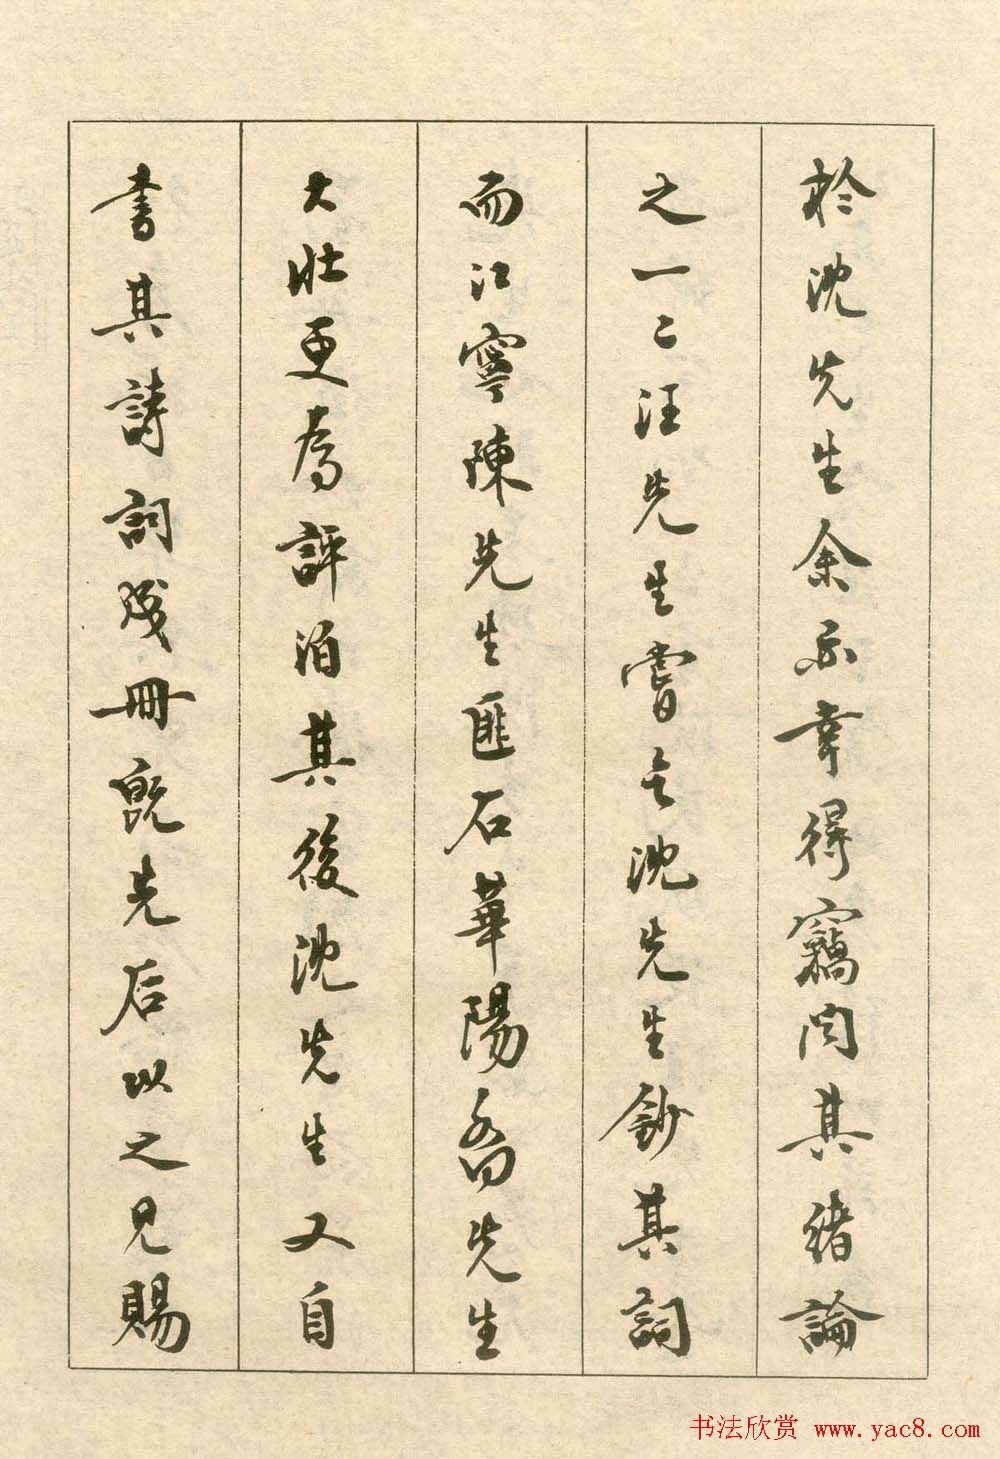 於沈先生余亦幸得竊聞其緒論
之一二汪先生嘗乞沈先生鈔其詞
而江寧陳先生匪石華陽喬先生
大壯更為評泊其後沈先生又自
書其詩詞殘冊既先后以之見賜
书法欣赏 www.yac8.com